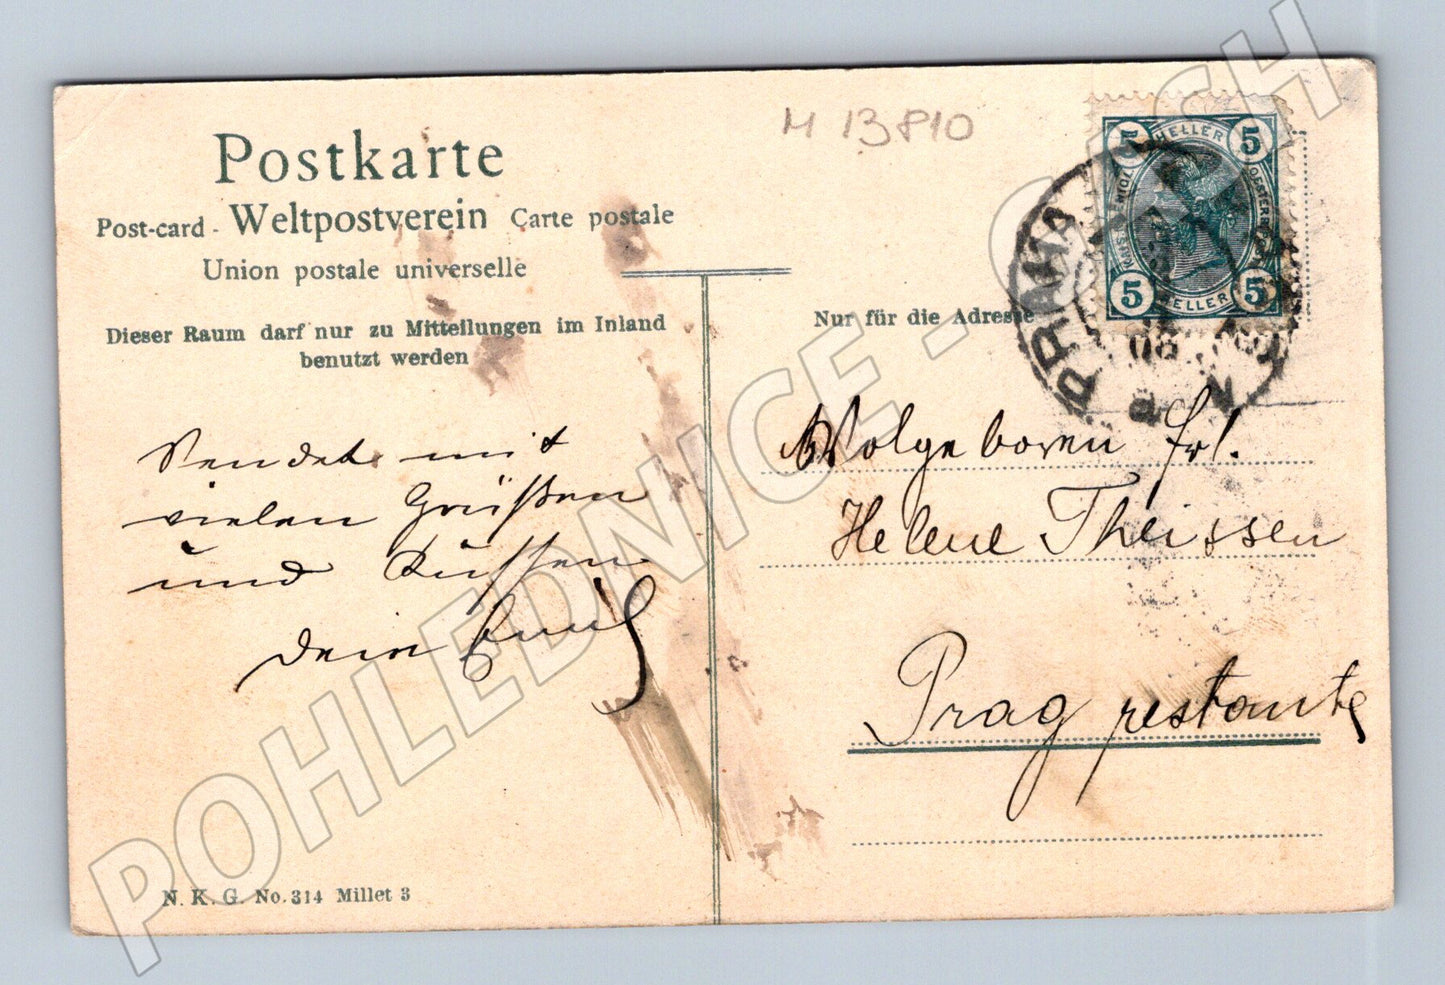 M 13810
Postkarte
Post-card - Weltpostverein Carte postale
Union postale universelle
Dieser Raum darf nur zu Mitteilungen im Inland
benutzt werden
Sendet mit
vielen Grüßen
und Küssen
Dein Emil
N. K. G. No. 314 Millet 3
5 HELLER 5
5 HELLER 5
PRAHA
Nur für die Adresse
Wolgeboren Frl.
Helene Theissen
Prag restante
POHLEDNICE - CZECH